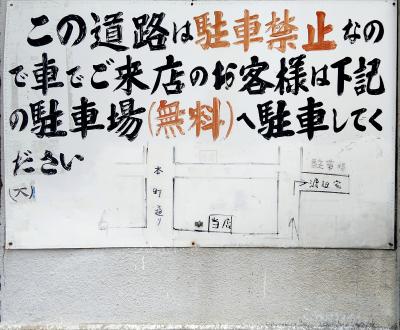 この道路は駐車禁止なの
で車でご来店のお客様は下記
の駐車場(無料)へ駐車してく
ださい
(大)
本町通り
駐車場
渡辺宅
当店